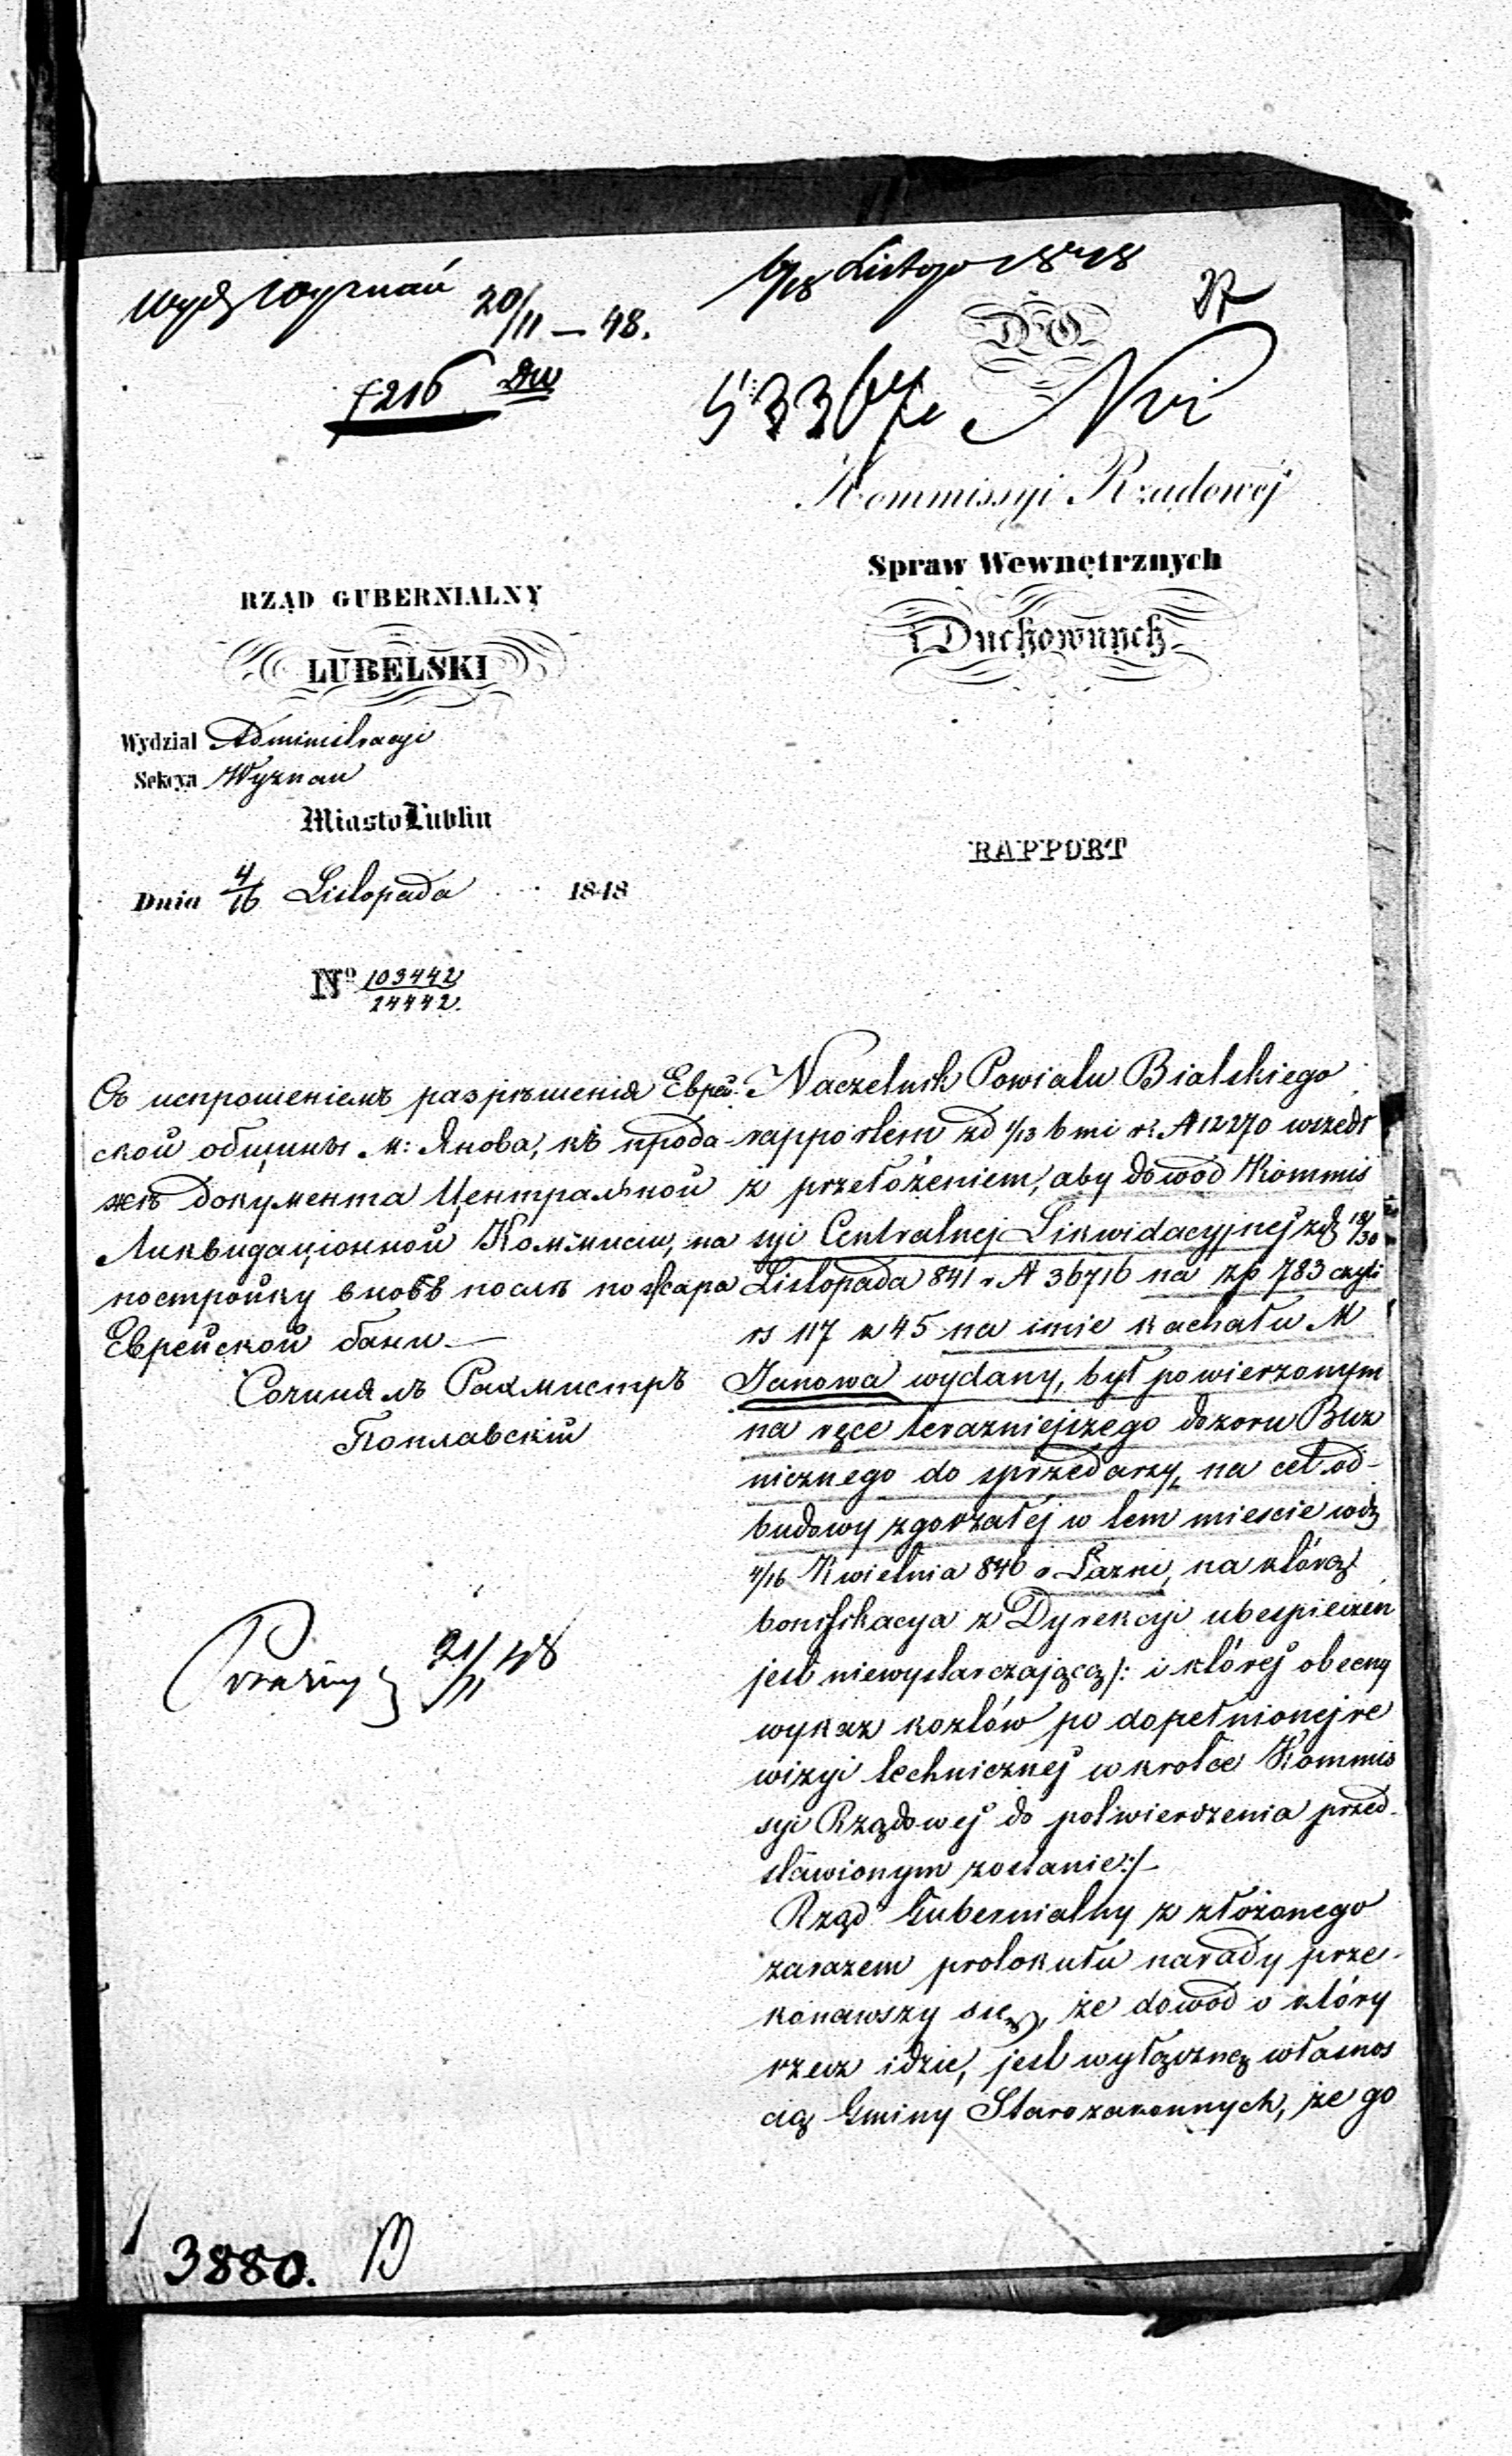 Wydz Wyznań
20/11 – 48.
7216 Dw
6/18 Listopo 1848
37
DO
Kommissyi Rządowéj
Spraw Wewnętrznych
i Duchownych
RZĄD GUBERNIALNY
LUBELSKI
Wydział Administracyi
Sekcya Wyznań
Miasto Lublin
Dnia 4/16 Listopada 1848
RAPPORT
No 103442/24442.
Съ испрошеніемъ разрѣшенія Еврей-
ской общины м: Янова, къ прода-
жѣ документа Центральной
Ликвидаціонной Коммисіи, на
постройку вновь послѣ пожара
Еврейской бани –
Сочинялъ Рахмистръ
Поплавскій
21/11 48
Naczelnik Powiatu Bialskiego
rapportem zd 1/13 b mi r. N 12270 wszedł
z przełożeniem, aby dowód Kommis
syi Centralnej Likwidacyjnej zd 18/30
Listopada 841 r N 36716 na zp 783 czyli
rs 117 k 45 na imie kachału M
Janowa wydany, był powierzonym
na ręce terazniejszego dozoru Buz
nicznego do sprzedarzy, na cel od-
budowy zgorzałéj w tem miescie wdz
4/16 Kwietnia 846 r Łazni, na którą
bonifikacya z Dyrekcyi ubespieczeń
jest niewystarczającą /: i któréj obecny
wykaz kosztów po dopełnionej re
wizyi technicznéj wkrotce Kommis
syi Rządowéj do potwierdzenia przed-
stawionym zostanie :/ –
Rząd Gubernialny z złożonego
zarazem protokułu narady prze-
konawszy się, że dowód o który
rzecz idzie, jest wyłączną własnos
cią Gminy Starozakonnych, że go
3880.